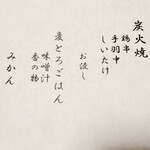 炭火焼
鶏串
手羽中
しいたけ
お浸し
麦とろごはん
味噌汁
香の物
みかん